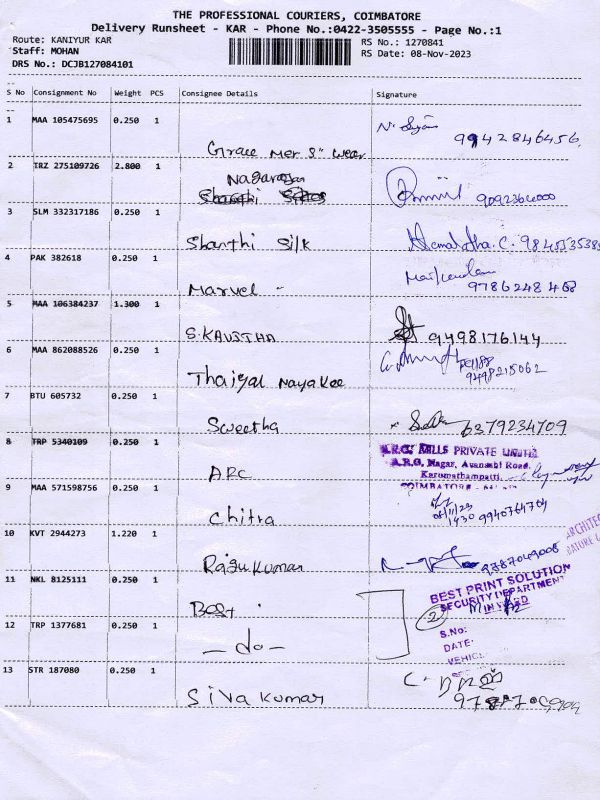 THE PROFESSIONAL COURIERS, COIMBATORE
Delivery Runsheet - KAR - Phone No.:0422-3505555 - Page No.:1
Route: KANIYUR KAR
Staff: MOHAN
DRS No.: DCJB127084101
RS No.: 1270841
RS Date: 08-Nov-2023
S No Consignment No Weight PCS Consignee Details Signature
1 MAA 105475695 0.250 1
Grace Men's wear 9942846456
2 TRZ 275109726 2.800 1
Nagarajan 9092364000
3 SLM 332317186 0.250 1
Shanthi Silk Hemalatha.C.
4 PAK 382618 0.250 1
Marvel 9786248468
5 MAA 106384237 1.300 1
S.KAUSTHA 9498176144
6 MAA 862088526 0.250 1
Thaiyal Nayakee 9498215062
7 BTU 605732 0.250 1
Swetha 6379234709
8 TRP 5340109 0.250 1
ARC
A.R.G. MILLS PRIVATE LIMITED
A.R.G. Nagar, Avanashi Road,
Karumathampatti,
COIMBATORE
9 MAA 571598756 0.250 1
Chitra
08/11/23
1430 9940764764
10 KVT 2944273 1.220 1
Ragu Kumar 9387049008
11 NKL 8125111 0.250 1
Best
BEST PRINT SOLUTION
SECURITY DEPARTMENT
INWARD
2
S.No:
DATE:
VEHICL
12 TRP 1377681 0.250 1
-do-
13 STR 187080 0.250 1
Siva Kumar